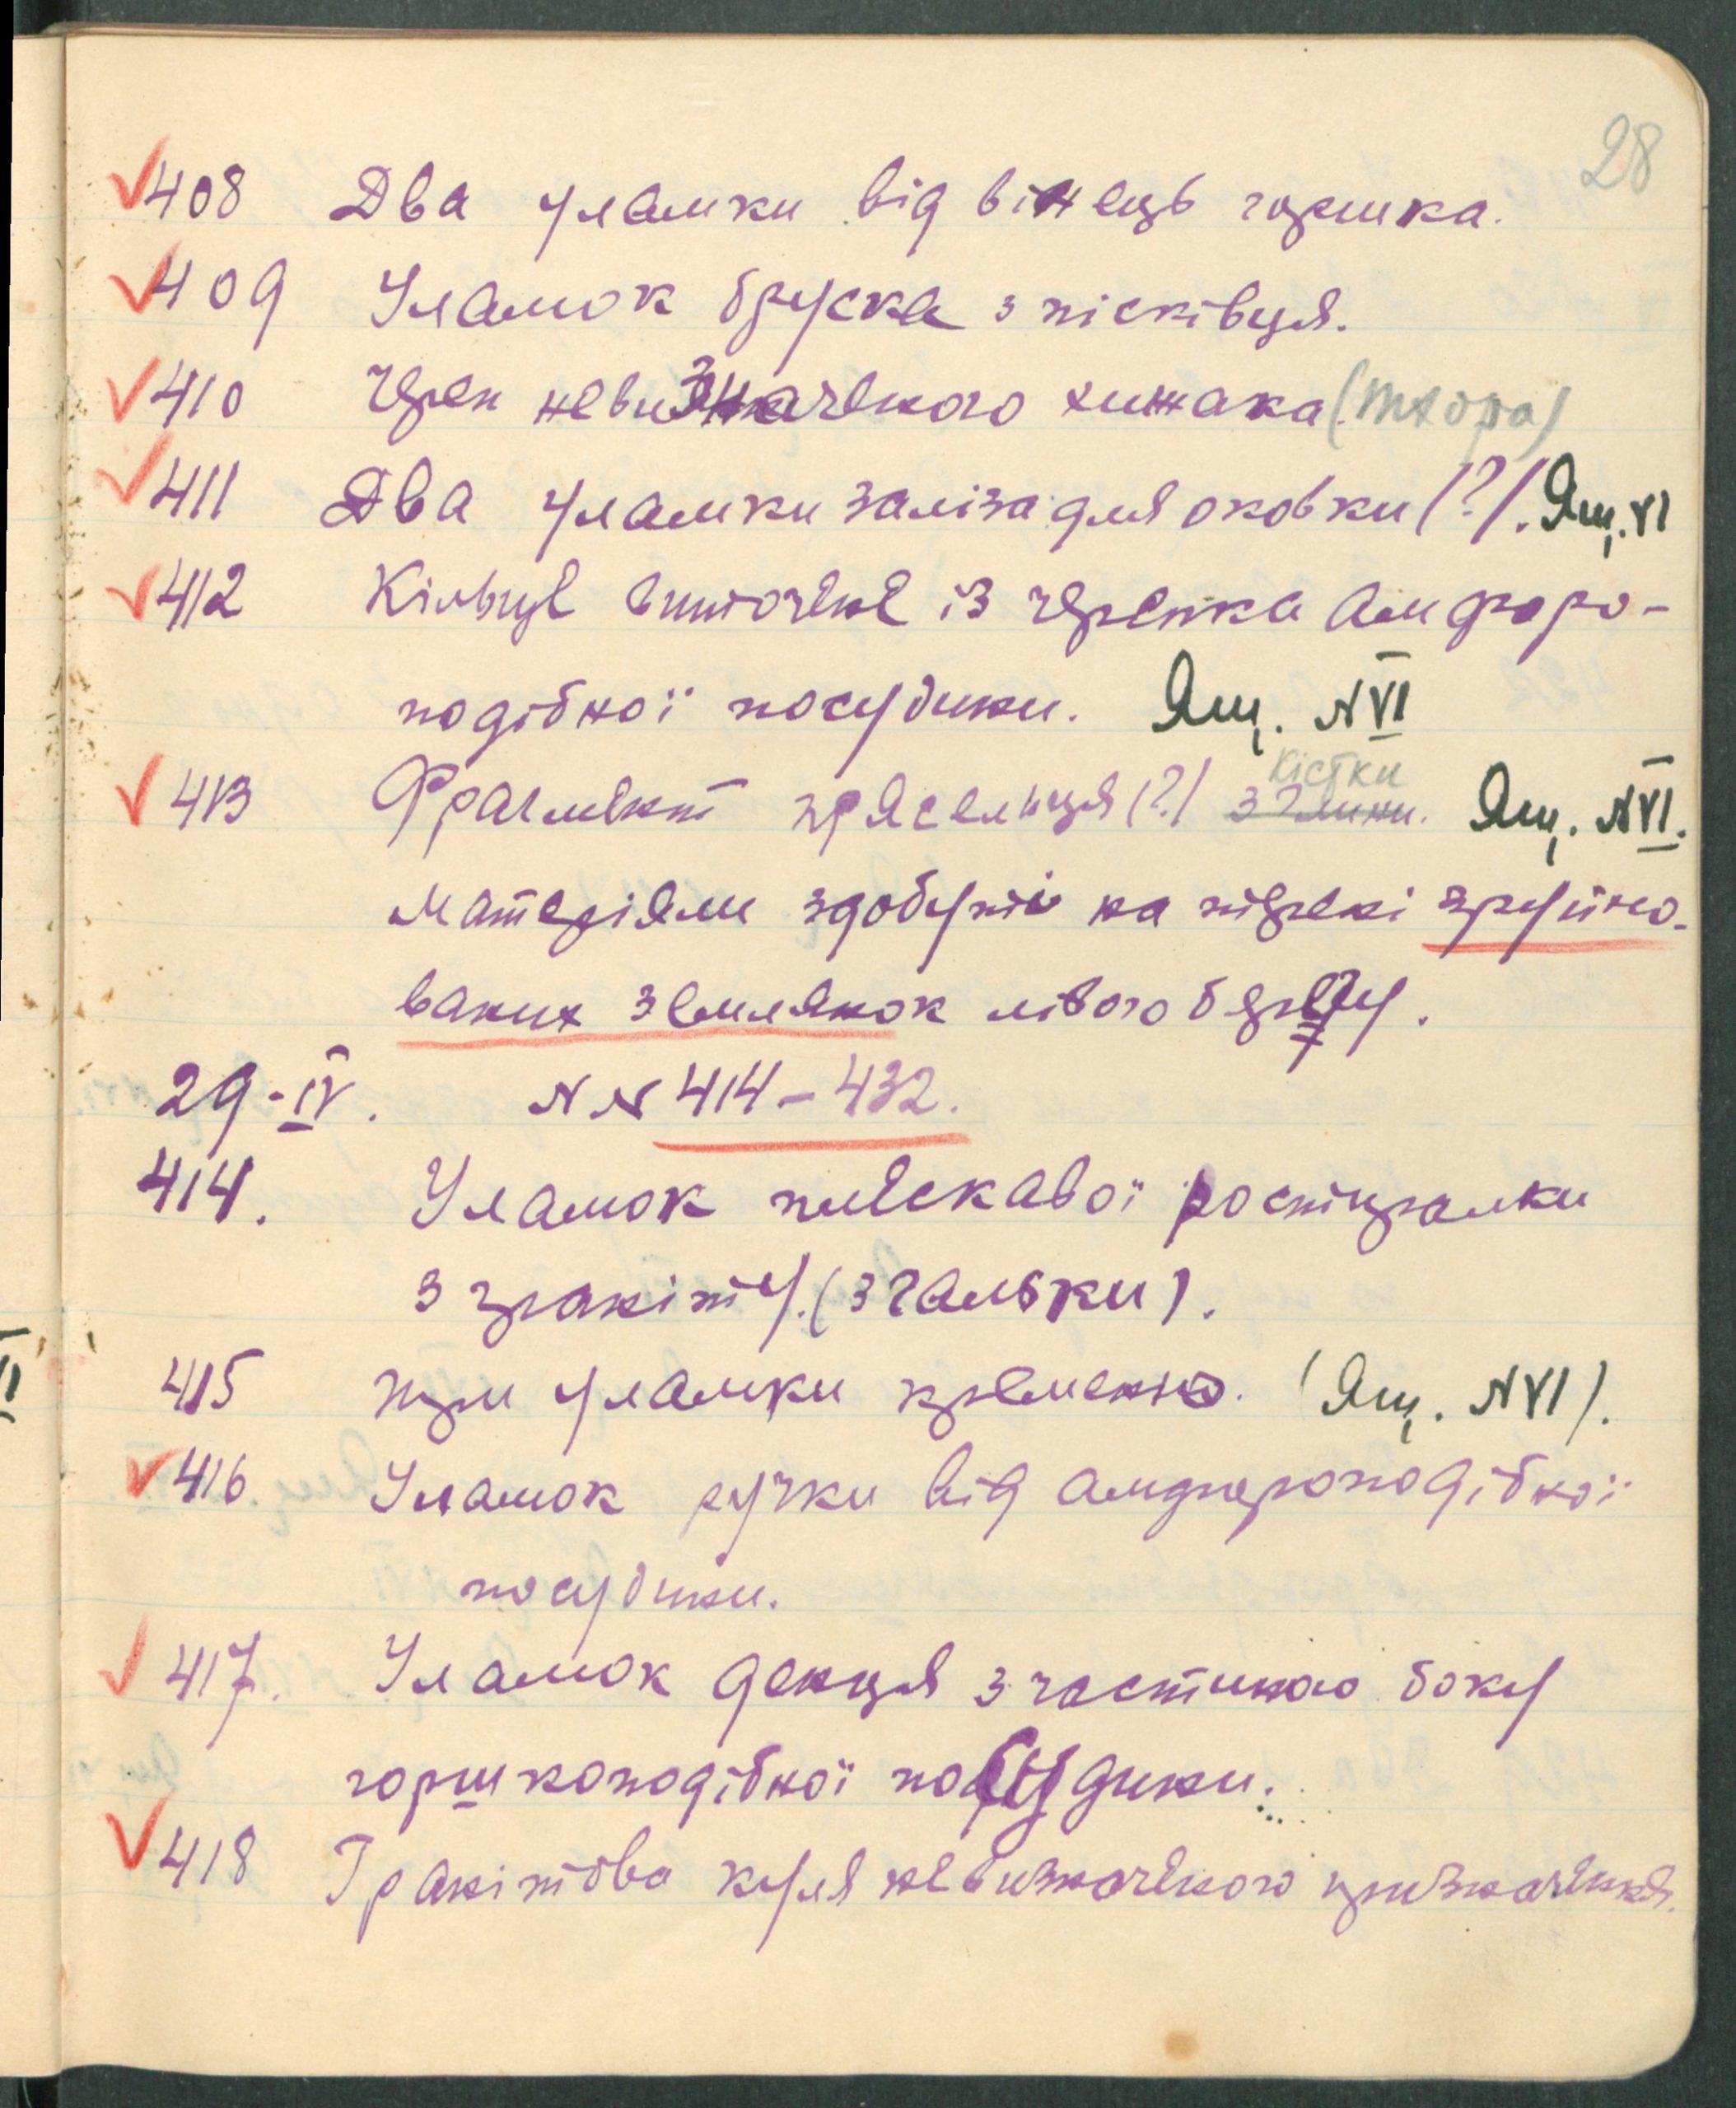 28
408 Два уламки від вінець горшка.
409 Уламок бруска з пісківця.
410 Череп невизначеного хижака (тхора)
411 Два уламки заліза для оковки (?). Ящ. VI
412 Кільце виточене із черепка амфоро-
подібної посудини. Ящ. N VI
кістки
413 Фрагмент пряселиця (?) з глини. Ящ. N VI.
Матеріяли здобуті на терені зруйно-
ваних землянок лівого берегу.
29-IV. N N 414 – 432.
414. Уламок плескавої ростиралки
з граніту. (з гальки).
415 три уламки кременю. (Ящ. N VI).
416 Уламок ручки від амфороподібної
посудини.
417. Уламок денця з частиною боку
горшкоподібної посудини.
418 Гранітова куля невизначеного призначення.